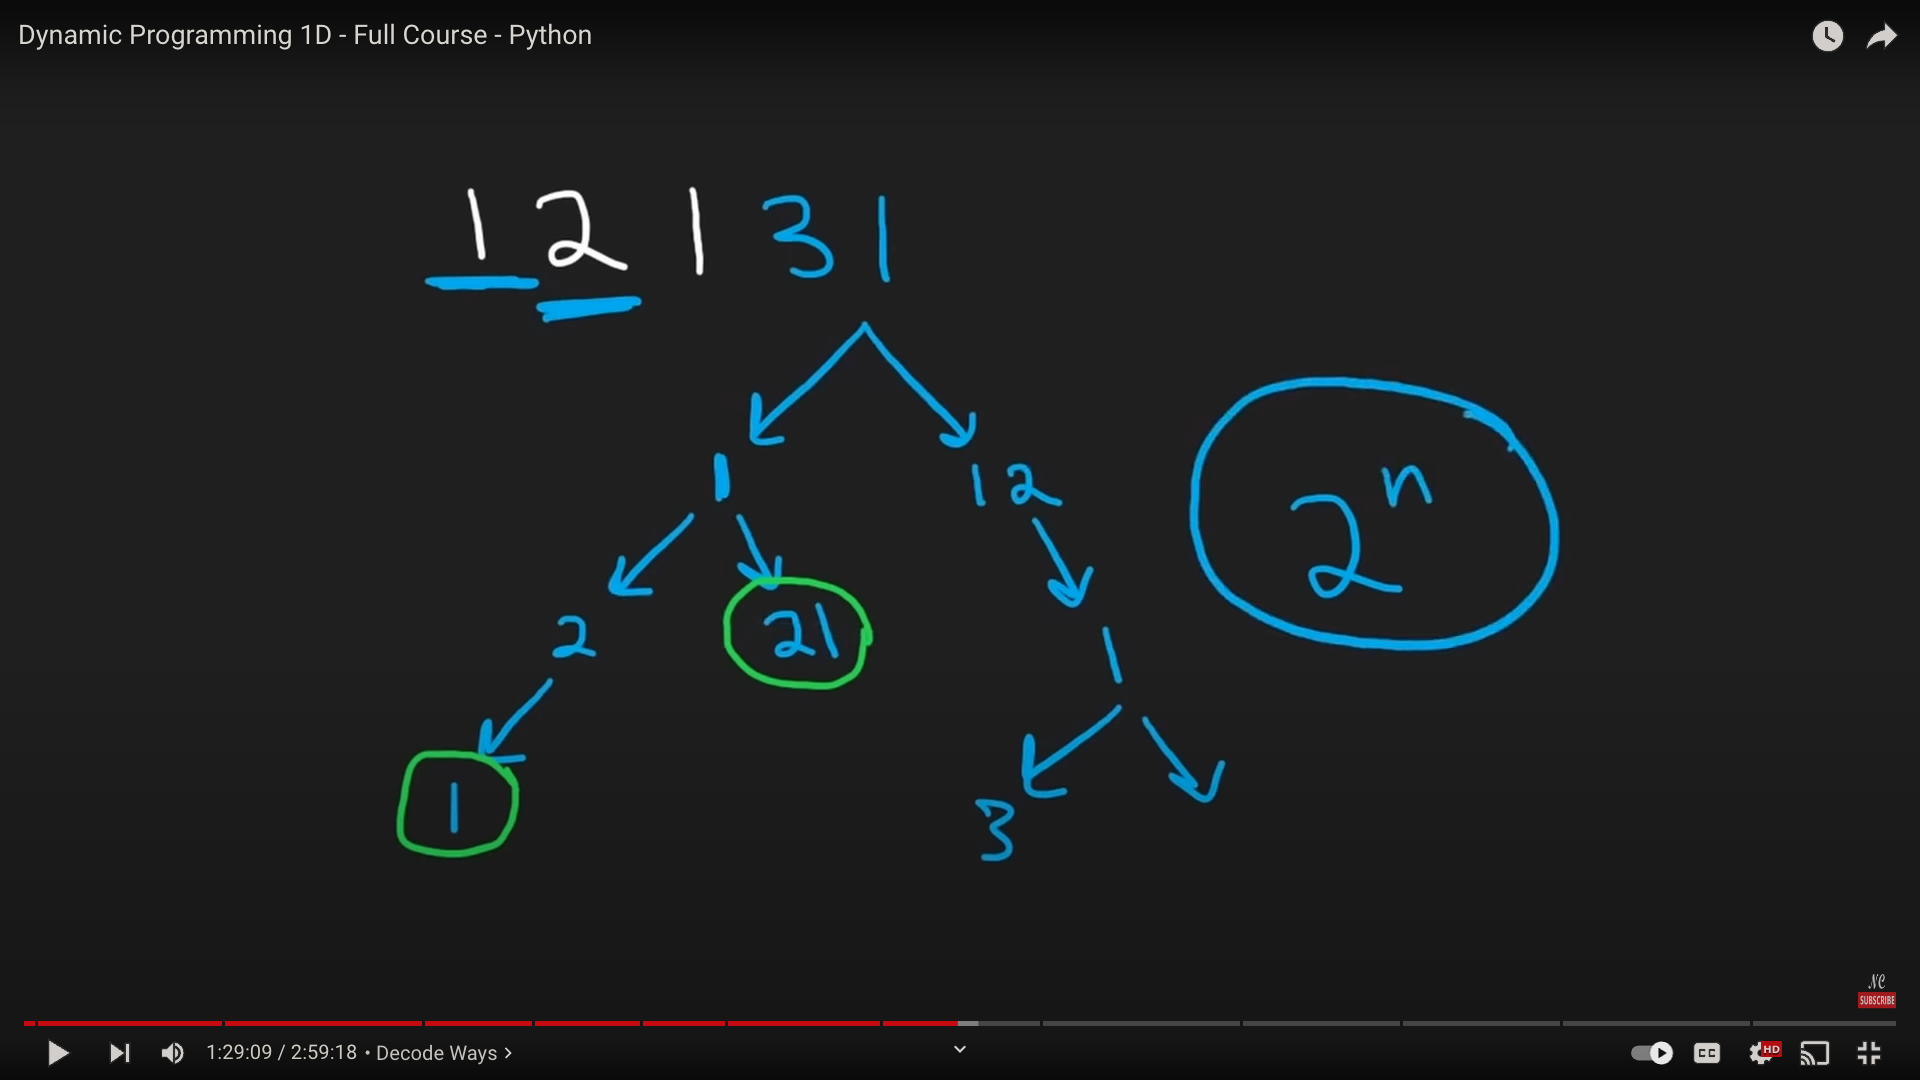 Dynamic Programming 1D - Full Course - Python
1 2 1 3 1
1 12
2^n
2 21
1
1
3
NC
SUBSCRIBE
1:29:09 / 2:59:18 • Decode Ways >
CC HD